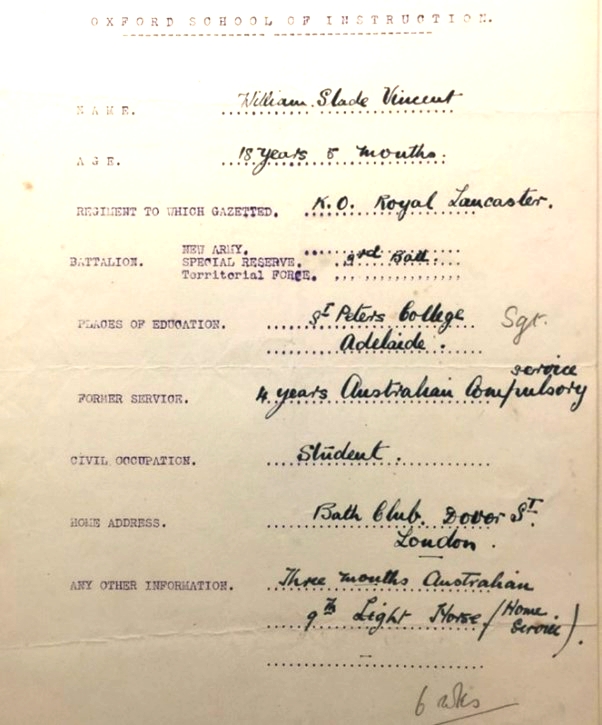 OXFORD SCHOOL OF INSTRUCTION.
NAME. William Slade Vincent
AGE. 18 years 5 months.
REGIMENT TO WHICH GAZETTED. K.O. Royal Lancaster.
NEW ARMY.
BATTALION. SPECIAL RESERVE. 3rd Batt.
Territorial FORCE.
PLACES OF EDUCATION. St Peters College Sgt.
Adelaide.
service
FORMER SERVICE. 4 years Australian Compulsory
CIVIL OCCUPATION. Student.
HOME ADDRESS. Bath Club. Dover St.
London.
ANY OTHER INFORMATION. Three months Australian
9th Light Horse (Home
Service).
6 wks